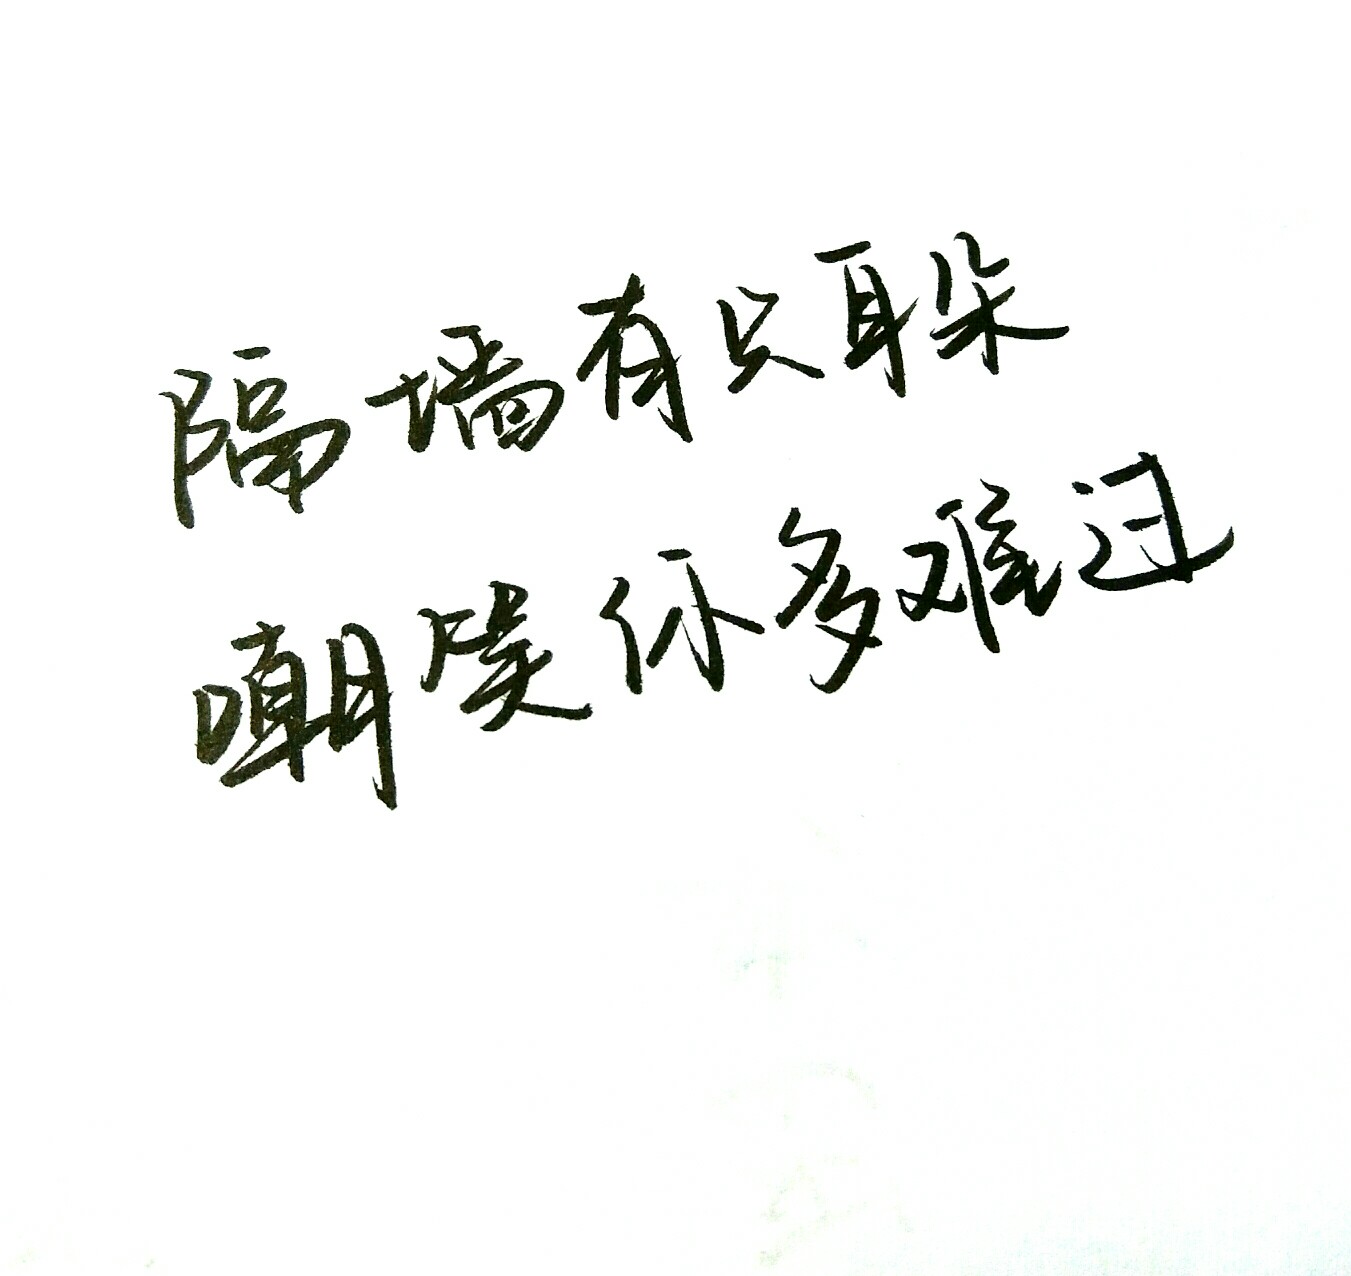 隔墙有只耳朵
嘲笑你多难过